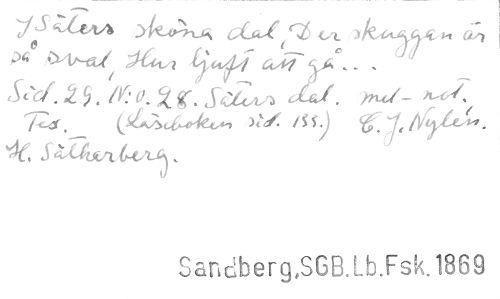 I Säters sköna dal, Der skuggan är
så sval, Hur ljuft att gå...
Sid. 29. N:o. 28. Säters dal. mel-not.
Tex. (Läseboken sid. 199.) C. J. Nylén.
H. Sätherberg.
Sandberg,SGB.Lb.Fsk.1869